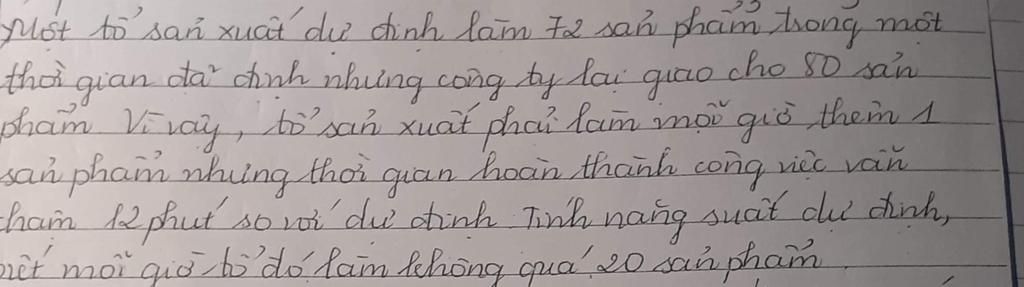 Một tổ sản xuất dự định làm 72 sản phẩm trong một
thời gian đã định nhưng công ty lại giao cho 80 sản
phẩm Vì vậy, tổ sản xuất phải làm mỗi giờ thêm 1
sản phẩm nhưng thời gian hoàn thành công việc vẫn
chậm 12 phút so với dự định Tính năng suất dự định,
biết mỗi giờ tổ đó làm không quá 20 sản phẩm